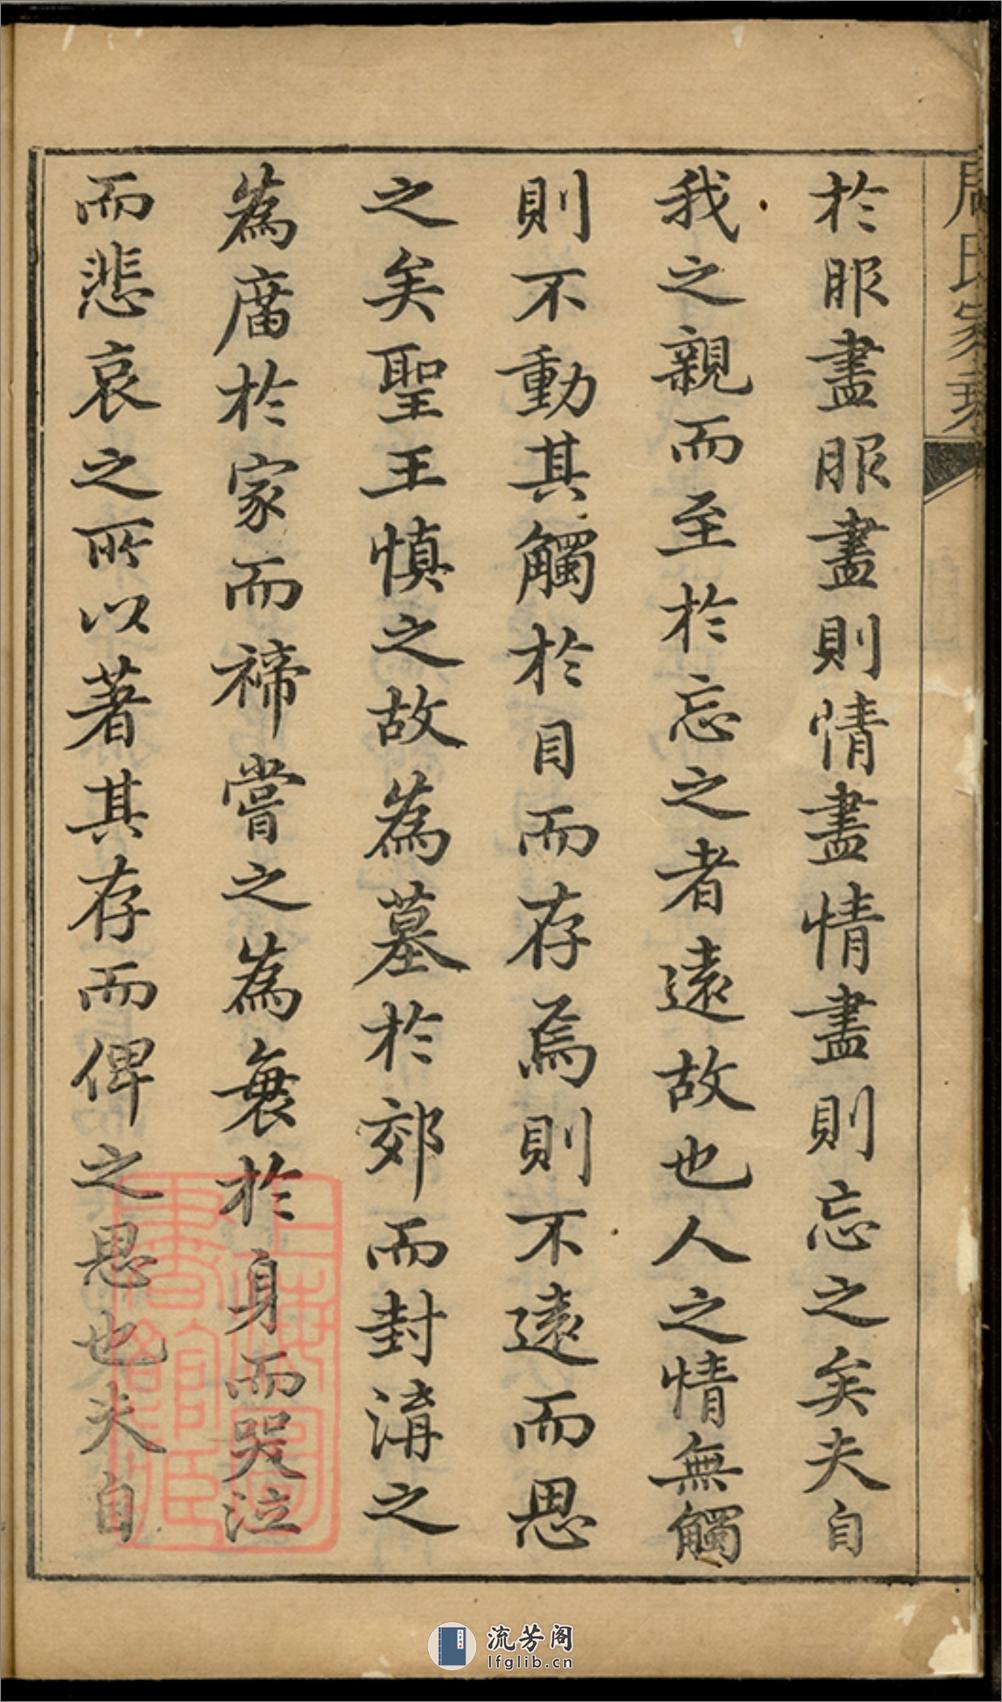 於服盡服盡則情盡情盡則忘之矣夫自
我之親而至於忘之者遠故也人之情無觸
則不動其觸於目而存焉則不遠而思
之矣聖王慎之故為墓於郊而封溝之
為廟於家而禘嘗之為衰於身而哭泣
而悲哀之所以著其存而俾之思也夫自
上海圖書館藏
流芳阁
lfglib.cn